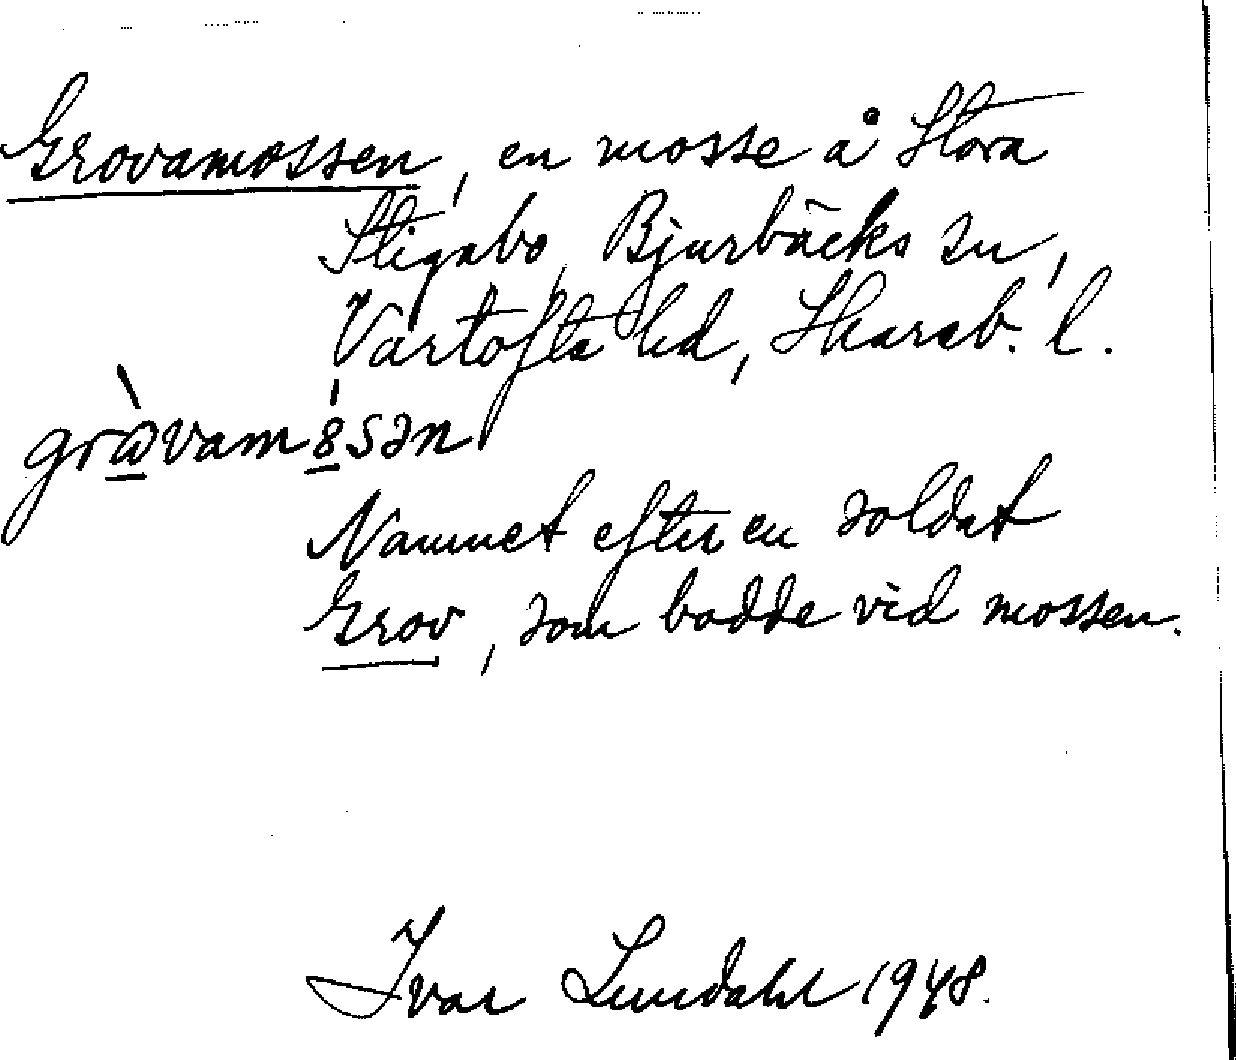 Grovamossen, en mosse å Stora
Stigabo, Bjurbäcks sn,
Vartofta hd, Skarab. l.
grѡ̀vam8́sən
Namnet efter en soldat
Grov, som bodde vid mossen.
Ivar Lundahl 1948.